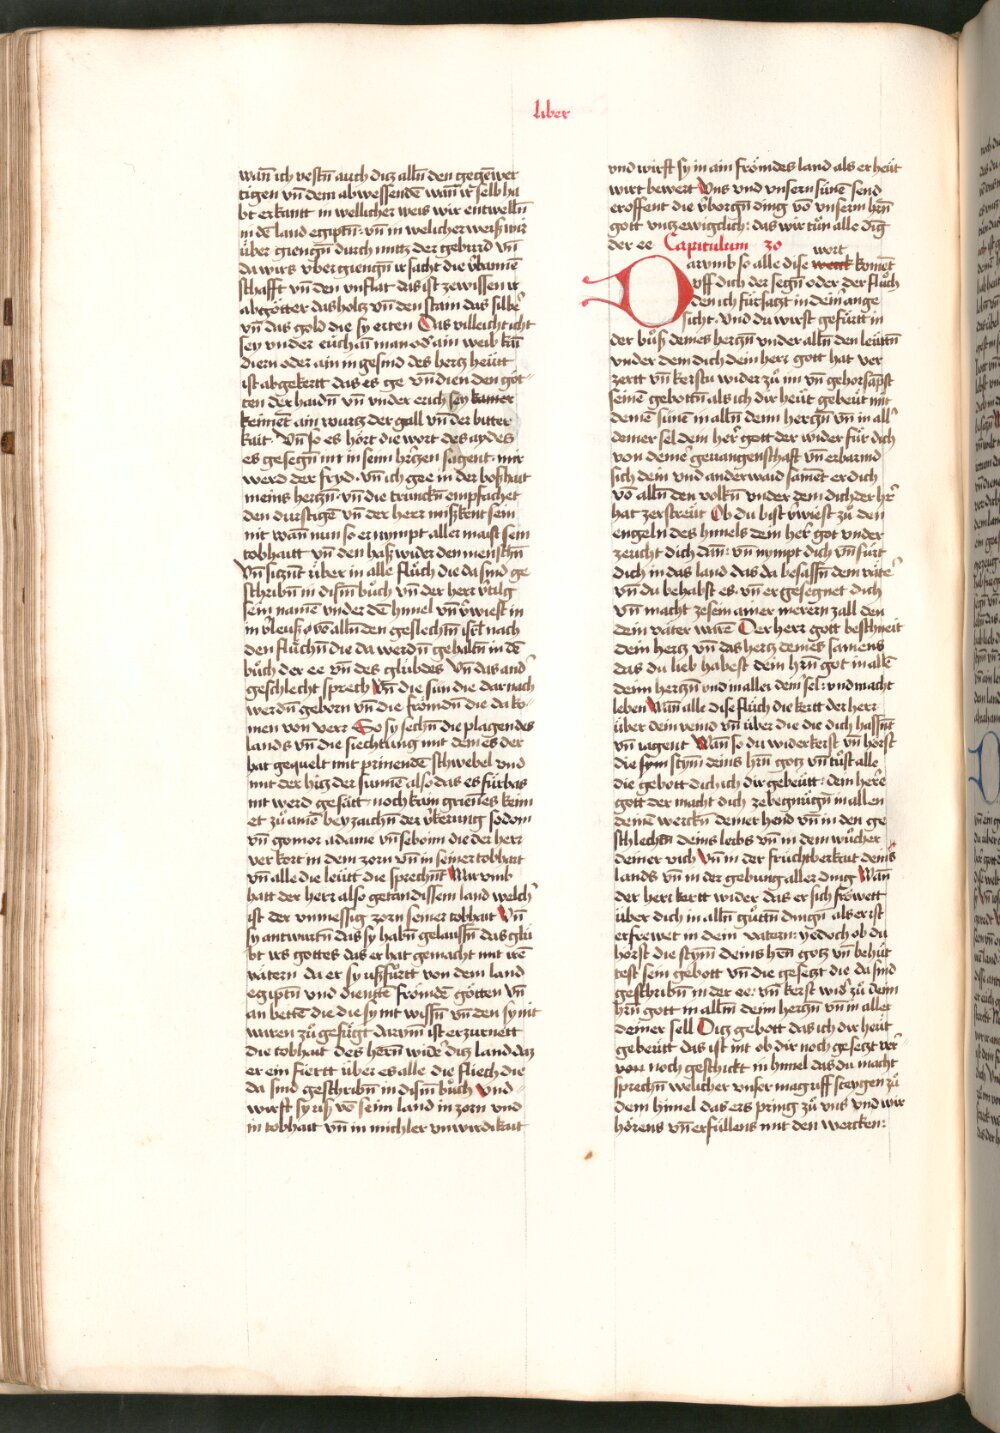 liber
wan̄ ich vestn̄ auch ditz alln̄ den gegēwer
tigen vn̄ dem abwessendē wan̄ ir selb ha
bt erkantt in wellicher weis wir entwelltn̄
in dē land egiptn̄ · vn̄ in welicher weiß wir
über giengn̄ durch mittz der geburd vn̄
da wirs vbergiengn̄ ir sacht die v̓bannē
schafft vn̄ den vnflat das ist zewissen ir
abtgötter das holtz vn̄ den stain das silbe᷑
vn̄ das gold die sy erten Das villeicht icht
sey vnder euch ain man od᷑ ain weib kain
diern oder ain ingesind des hertz heütt
ist abgekertt das es ge vn̄ dien den göt
ten der haidn̄ vn̄ vnder euch sey kainer
keimēt ain wurtz der gall vn̄ der bitter
kait · Vn̄ so es hört die wort des aydes
es gesegn̄ im in seim hr̄tzen sagent · mir
werd der fryd · vn̄ ich gee in der boßhait
meins hertzn̄ · vn̄ die trunckn̄ empfachet
den durstigē vn̄ der herr mißkent sein
nit wann nun so er nympt aller maist sein
tobhaitt vn̄ den haß wider den menschn̄
Vn̄ sitznt über in alle flu̓ch die da sind ge
schribn̄ in disem bu̓ch vn̄ der herr v̓tilg
sein namē vnder dē himel vn̄ v̓wiest in
in v̓leuß vō alln̄ den geslechtn̄ isr̄l nach
den flu̓chn̄ die da werdn̄ gehaltn̄ in dē
bu̓ch der ee vn̄ des glubdes Vn̄ das and᷑
geschlecht sprech Vn̄ die sün die dar nach
werdn̄ geborn vn̄ die frömdn̄ die da ko
men von verr So sy sechn̄ die plagen des
lands vn̄ die siechtung mit dem es der
hat gequelt mit prinendē schwebel vnd
mit der hitz der sunnē also das es fürbas
nit werd gesätt · noch kain grienes keim
et zu̓ ainē beyzaichn̄ der v̓kerung sodom
vn̄ gomor adame vn̄ seboim die der herr
verkort in dem zorn vn̄ in seiner tobhait
vn̄ alle die leütt die sprechnt Warumb
hatt der herr also getan dissem land welch᷑
ist der vnmessig zorn seiner tobhait Vn̄
sy antwurtn̄ das sy habn̄ gelaussn̄ das glü
bt irs gottes das er hat gemacht mit irē
vätern da er sy ußfürtt von dem land
egiptn̄ vnd dientē frömdē götten vn̄
an bettē die die sy nit wissn̄ vn̄ den sy nit
waren zu̓gefügt darum̄ ist erzurnett
die tobhait des herrn wide᷑ ditz land daz
er ein fiertt über es alle die fliech die
da sind geschribn̄ in disem bu̓ch Vnd
wirft sy uß vō seim land in zorn vnd
in tobhait vn̄ in michler vnwirdikait
vnd wirft sy in ain frömdes land als er heüt
wirt bewert Vns vnd vnsern sünē send
eroffent die v̓borgn̄ ding vō vnserm hr̄n
gott vntz ewigclich : das wir tu̓n alle dīg
der ee Capitulum 30
wort
Darumb so alle dise werck komēt
uff dich der segn̄ oder der flu̓ch
den ich fürsatzt in deim ange
sicht · Vnd du wirst gefürtt in
der bu̓ß deines hertzn̄ vnder alln̄ den leüttn̄
vnder dem dich dein herr gott hat ver
zertt vn̄ kerstu wider zu̓ im vn̄ gehorsapst
seinē gebottn̄ als ich dir heüt gebeüt mit
deinē sünē in alln̄ deim hertzn̄ vn̄ in all᷑
deiner sel dein her᷑ gott der wider für dich
von deine᷑ geuangenschaft vn̄ erbarmd
sich dein vnd anderwaid samēt er dich
vō alln̄ den volkn̄ vnder dem dich der hr᷑
hat zerstreüt Ob du bist v̓wiest zu̓ den
engeln des himels dein her᷑ got vnder
zeücht dich dan̄ : vn̄ nympt dich vn̄ fürt
dich in das land das da besassn̄ dein väte᷑
vn̄ du behabst es · vn̄ er gesegnet dich
vn̄ macht ze sein ainer merern zall den
dein väter warē Der herr gott beschneit
dein hertz vn̄ das hertz deines samens
das du lieb habest dein hr̄n got in allē
deim hertzn̄ vnd in aller deine᷑ sel : vnd macht
leben Wan̄ alle dise fluch die kertt der herr
über dein veind vn̄ über die die dich hassnt
vn̄ iagent Wan̄ so du widerkerst vn̄ hörst
die sym stym deins hr̄n gotz vn̄ tu̓st alle
die gebott die ich dir gebeütt : dein herre
gott der macht dich ze begnu̓gn̄ in allen
deinē werckn̄ deiner hend vn̄ in den ge
schlechtn̄ deins leibs vn̄ in dem wu̓cher
deiner vich Vn̄ in der fruchtberkait deins
lands vn̄ in der gebung aller ding Wan̄
der herr kertt wider das er sich frowett
über dich in alln̄ guttn̄ dingn̄ als er ist
erfrewet in dein vätern : yedoch ob du
hörst die stym̄ deins hern̄ gotz vn̄ behüt
test sein gebott vn̄ die gesetzt die da sind
geschribn̄ in der ee : vn̄ kerst wid᷑ zu̓ deim
hr̄n gott in alln̄ deim hertzn̄ vn̄ in aller
deiner sell Ditz gebott das ich dir heüt
gebeütt das ist nit ob dir noch gesetzt ver᷑
von noch geschickt in himel das du macht
sprechn̄ welicher vnser mag uff steygen zu̓
dem himel das ers pring zu̓ vns vnd wir
hörens vn̄ erfüllens mit den wercken :